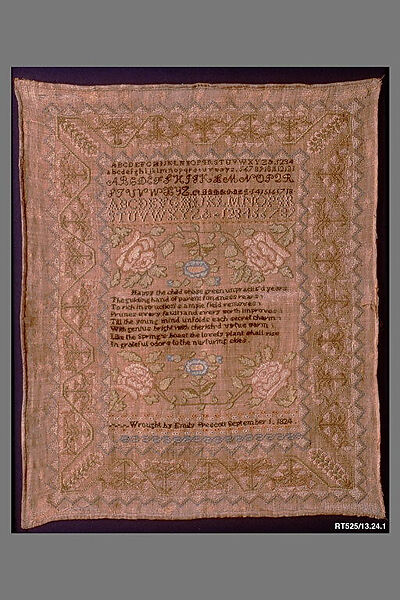 ABCDEFGHIJKLMNOPQRSTUVWXYZ& 1234
abcdefghijklmnopqrstuvwxyz
ABCDEFGHIJKLMNOPQR
STUVWXYZ
Happy the child whose green unpractis'd years
The guiding hand of parent fondness rears
To rich instructions ample field removes
Prunes every fault and every worth improves
Till the young mind unfolds each secret charm
With genius bright with cherish'd virtue warm
Like the spring's boast the lovely plant shall rise
In grateful odors to the nurturing skies
Wrought by Emily Prescott September 1. 1824
RT525/13.24.1